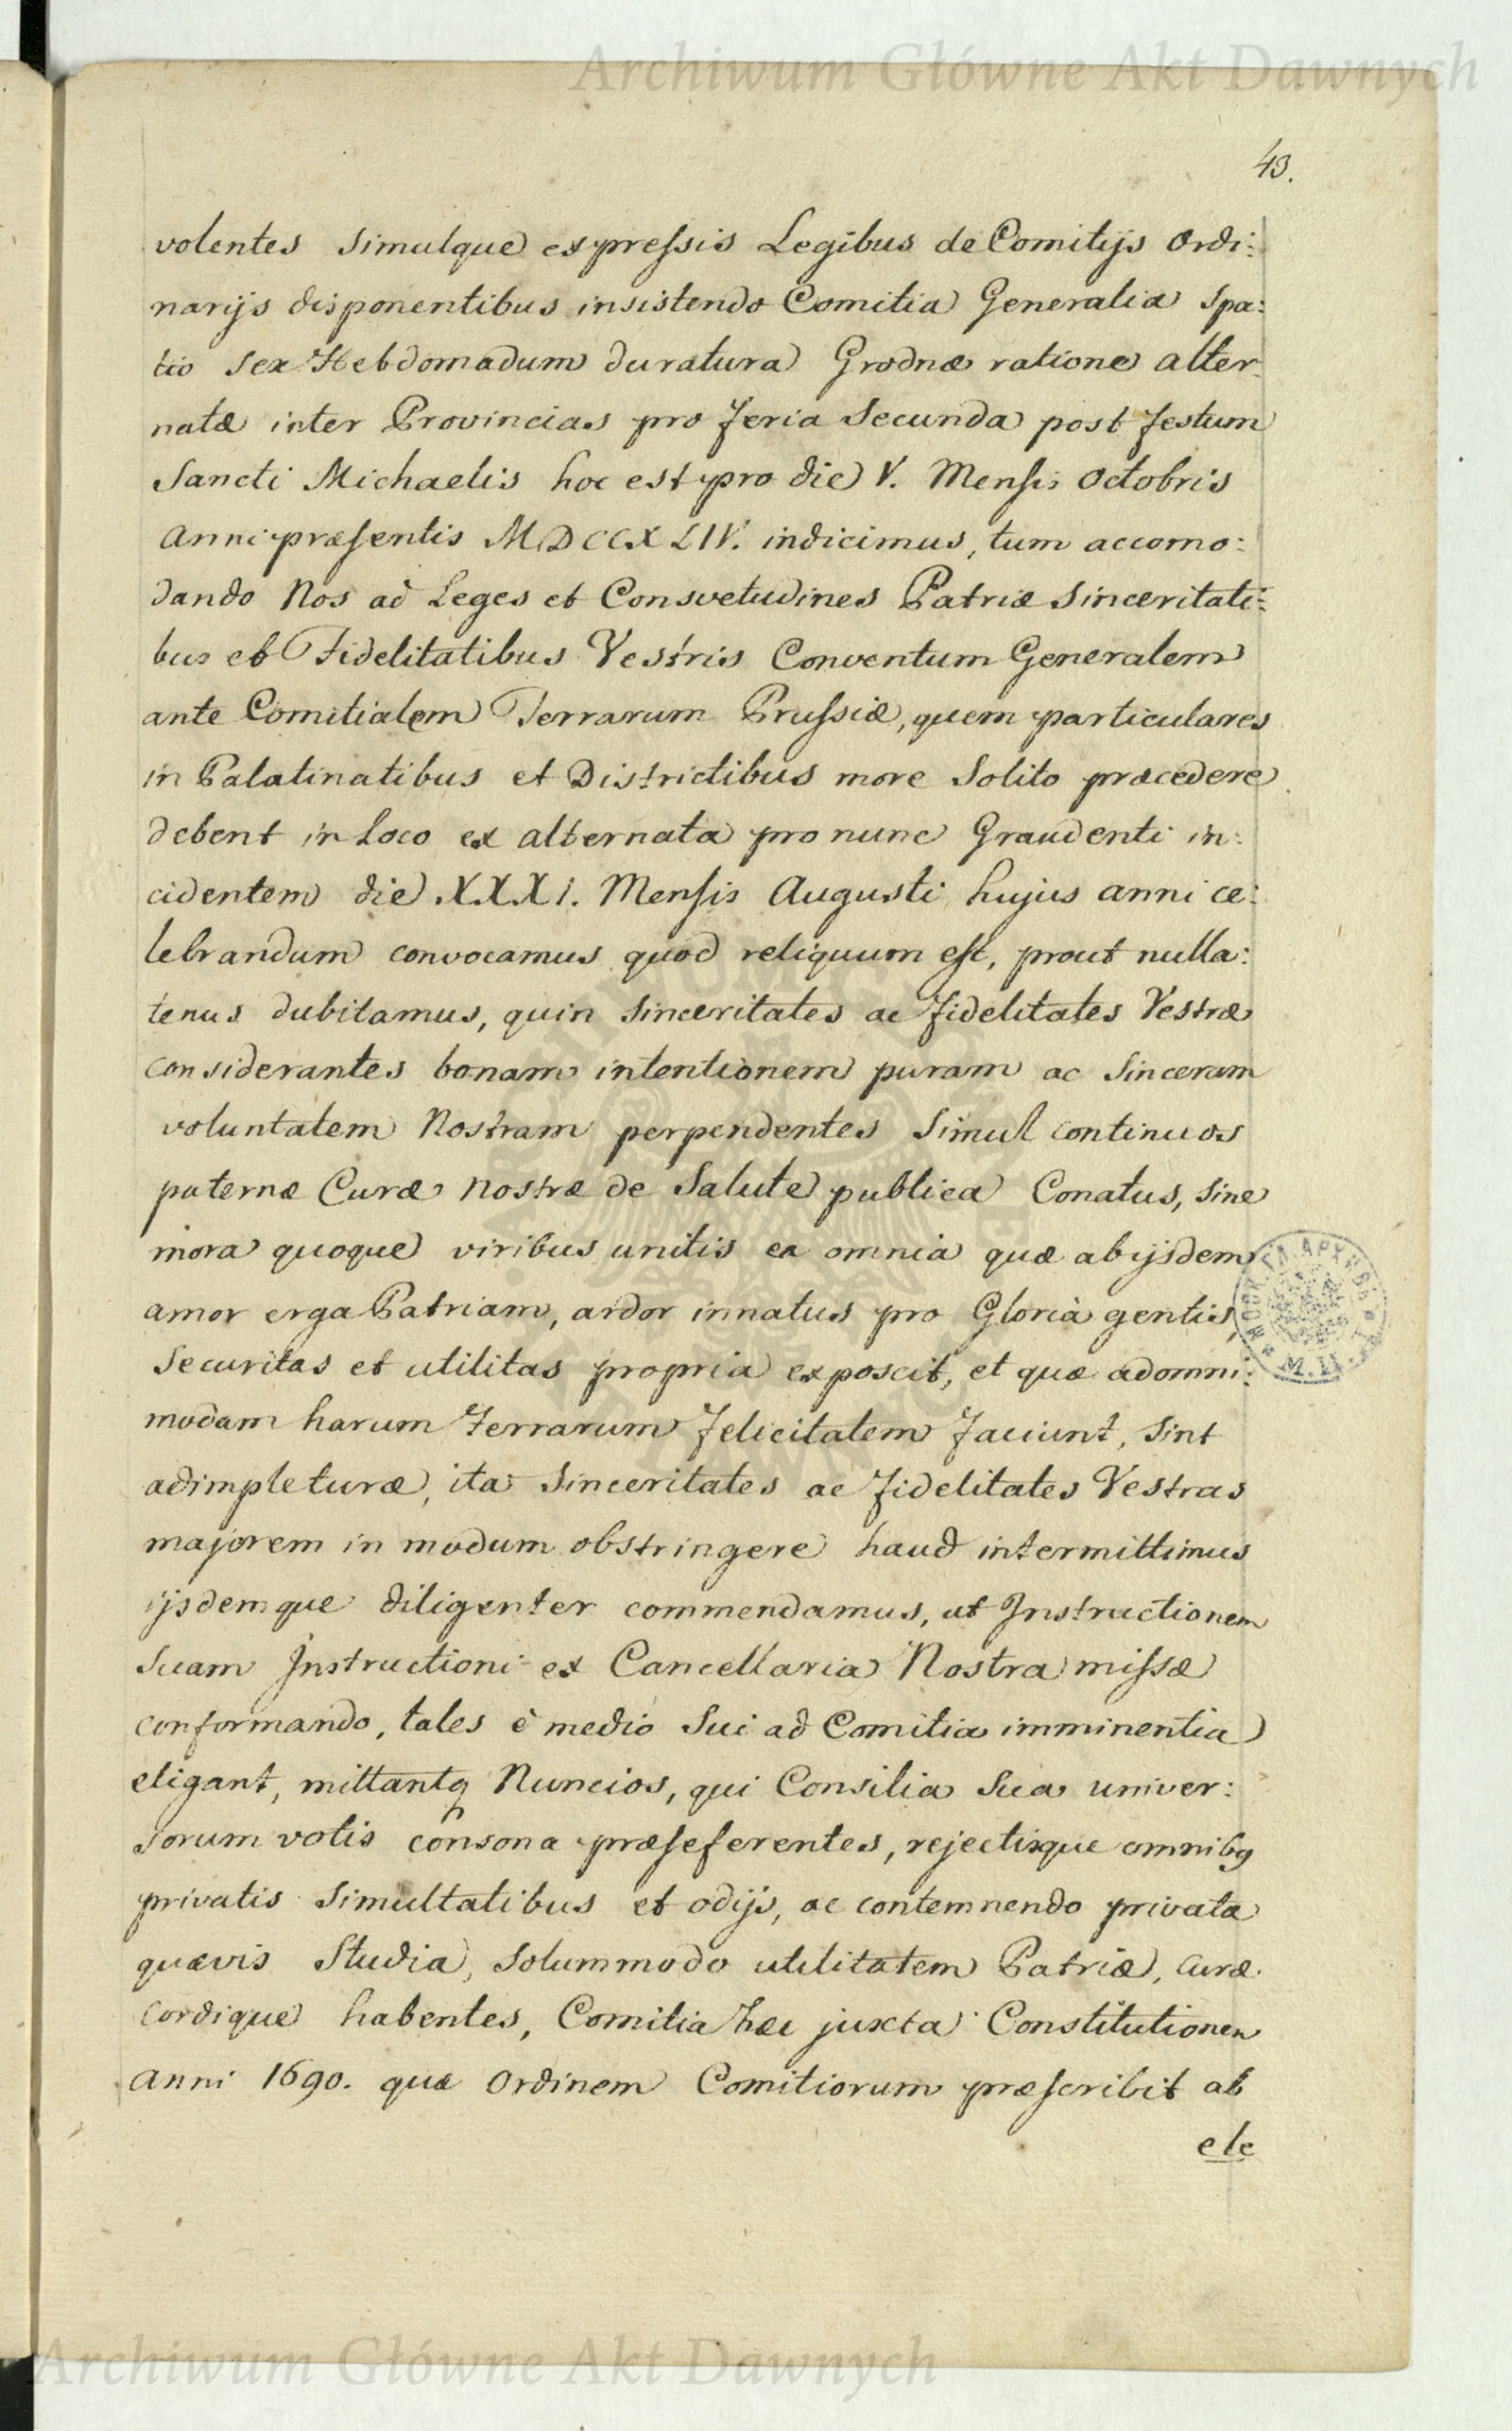 Archiwum Główne Akt Dawnych
43.
volentes simulque expressis Legibus de Comitijs Ordi:
narijs disponentibus insistendo Comitia Generalia spa:
tio sex Hebdomadum duratura Grodnæ ratione alter
natæ inter Provincias pro feria secunda post festum
Sancti Michaelis hoc est pro die V. Mensis Octobris
Anni præsentis MDCCXLIV. indicimus, tum accomo:
dando Nos ad Leges et Consvetudines Patriæ Sinceritati:
bus et Fidelitatibus Vestris Conventum Generalem
ante Comitialem Terrarum Prussiæ, quem particulares
in Palatinatibus et Districtibus more solito præcedere
debent in Loco ex alternata pro nunc Graudenti in:
cidentem die XXXI. Mensis Augusti hujus anni ce:
lebrandum convocamus quod reliquum est, prout nulla:
tenus dubitamus, quin Sinceritates ac fidelitates Vestræ
considerantes bonam intentionem puram ac Sinceram
voluntatem Nostram perpendentes Simul continuos
paternæ Curæ nostræ de Salute publica Conatus, sine
mora quoque viribus unitis ea omnia quæ ab ijsdem
amor erga Patriam, ardor innatus pro Gloria gentis,
Securitas et utilitas propria exposcit, et quæ ad omni:
modam harum terrarum felicitatem faciunt, sint
adimpleturæ, ita Sinceritates ac fidelitates Vestras
majorem in modum obstringere haud intermittimus
ijsdemque diligenter commendamus, ut Instructionem
Suam Instructioni ex Cancellaria Nostra missæ
conformando, tales è medio Sui ad Comitia imminentia
eligant, mittantq Nuncios, qui Consilia Sua univer:
sorum votis consona præseferentes, rejectisque omnibq
privatis Simultatibus et odijs, ac contemnendo privata
quævis Studia, Solummodo utilitatem Patriæ, curæ
cordique habentes, Comitia hæc juxta Constitutionem
Anni 1690. quæ Ordinem Comitiorum præscribit ab
ele
Archiwum Główne Akt Dawnych